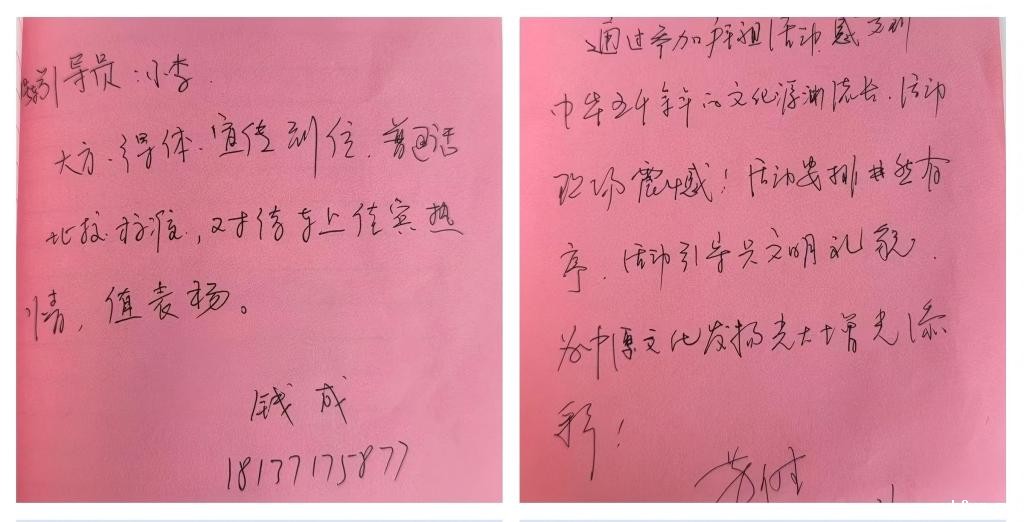 引导员:小李
大方、得体、宣传到位,普通话
比较标准,对待车上佳宾热
情,值表扬。
钱成
18137175877
通过参加拜祖活动感受到
中华五千余年的文化源渊流长.活动
现场震憾!活动安排井然有
序.活动引导员文明礼貌.
为中原文化发扬光大增光添
彩!